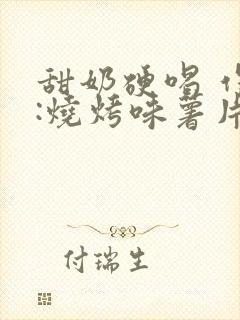 甜奶硬唱
:燒烤味薯片
付瑞生